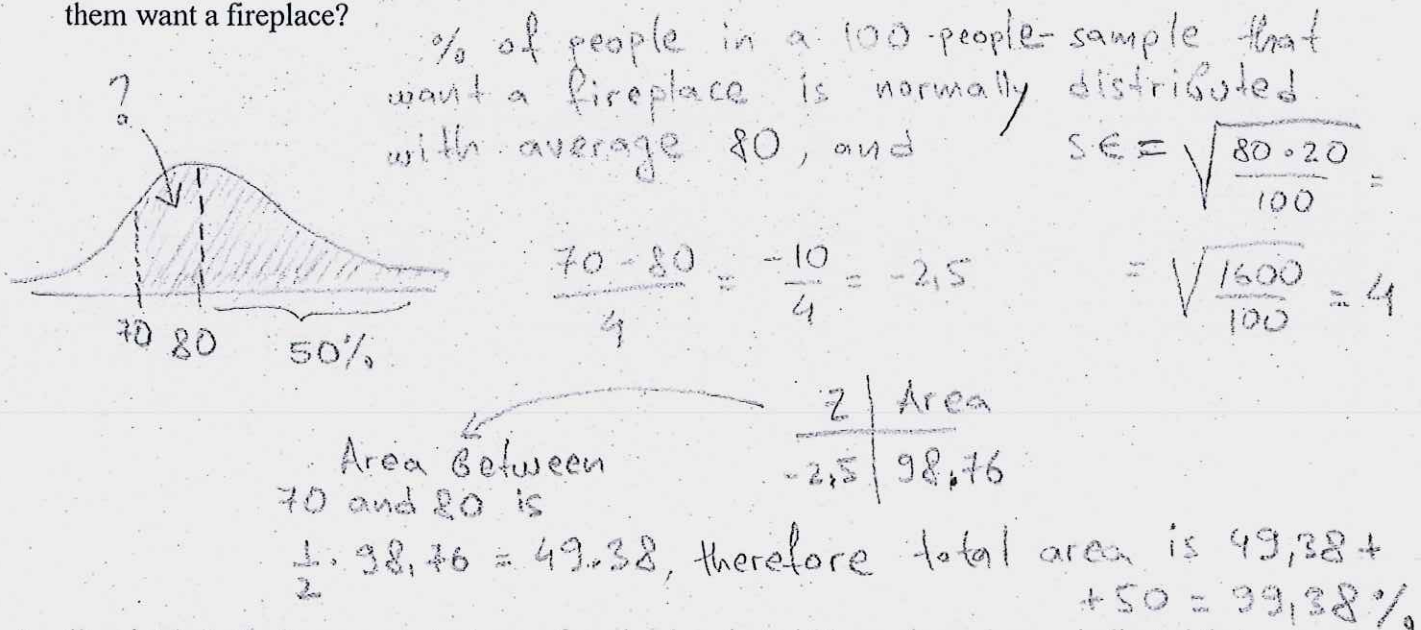 them want a fireplace?
% of people in a 100-people-sample that
want a fireplace is normally distributed
with average 80, and SE = √(80·20/100) =
?
(70-80)/4 = -10/4 = -2,5
= √(1600/100) = 4
70 80 50%
Z | Area
-2,5 | 98,76
Area Between
70 and 80 is
1/2 · 98,76 = 49.38, therefore total area is 49,38 +
+50 = 99,38%